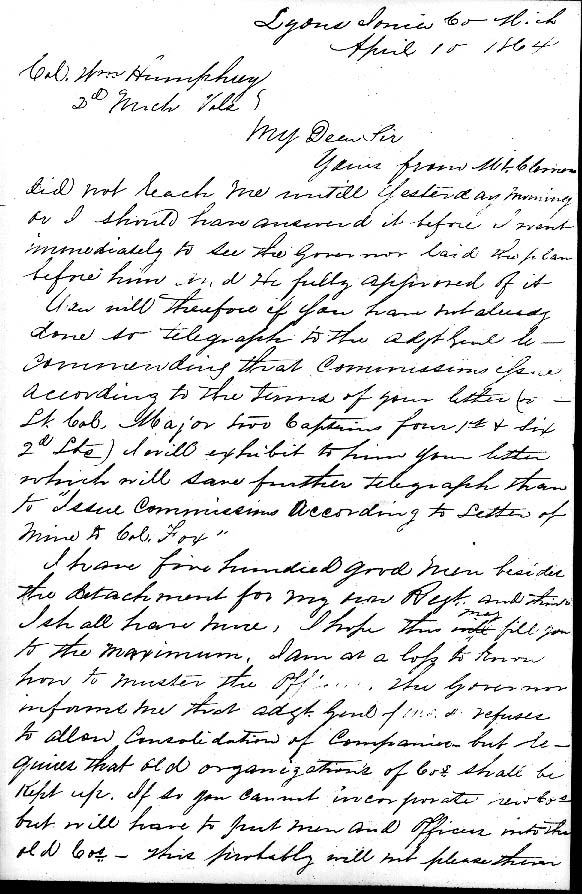 Lyons Ionia Co Mich
April 10 1864
Col. Wm Humphrey
2d Mich Vols
My Dear Sir
Yours from Mt. Clemens
did not reach me untill Yesterday morning
or I should have answerd it before I went
immediately to see the Governor laid the plan
before him and He fully approved of it
You will therefore if you have not already
done so telegraph to the adgt Genl re-
commending that Commissions issue
According to the terms of your letter (a -
Lt. Col. Major two Captains four 1st & six
2d Lts) I will exhibit to him your letter
which will save further telegraph than
to "Issue Commissions According to Letter of
Mine to Col. Fox"
I have five hundred good men besides
the detachment for my own Regt. and think
I shall have more, I hope this may fill you
to the maximum. I am at a loss to know
how to muster the Officers. The Governor
informs me that adgt. Genl refuses
to allow Consolidation of Companies - but re-
quires that old organizations of Cos. shall be
Kept up. If so you cannot incorporate new Cos
but will have to put men and Officers into the
old Cos. - this probably will not please them